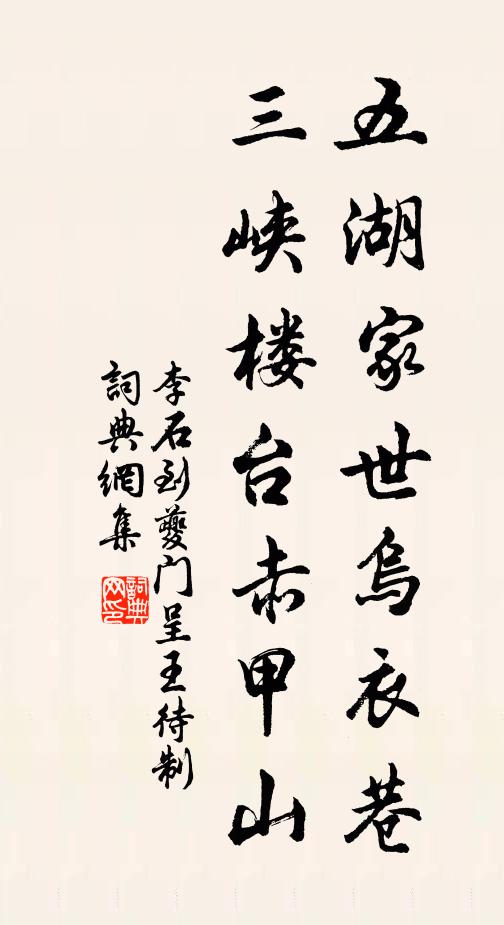 五湖家世乌衣巷
三峡楼台赤甲山
李石到夔门呈王待制
詞典網集
詞典网印